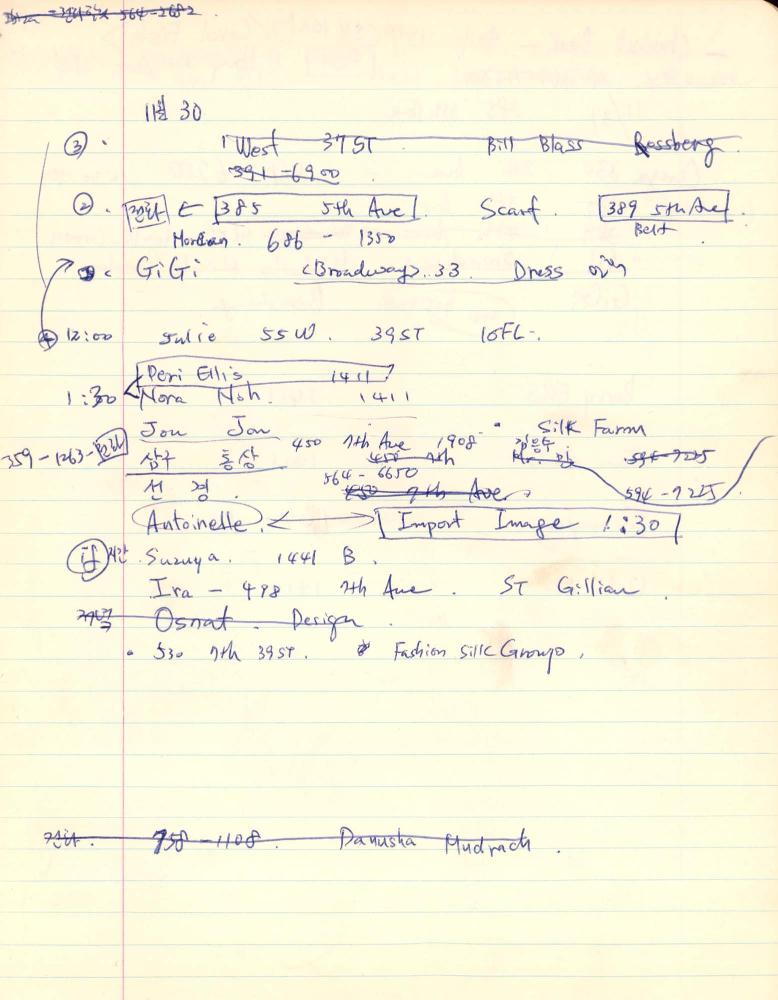 564-2682
11월 30
③ · 1 West 37 ST Bill Blass Rossberg
391-6900
② · 전화 ← 385 5th Ave Scarf 389 5th Ave
686 - 1350 Belt
GiGi <Broadway> 33 Dress
④ 12:00 Julie 55 W. 39 ST 10FL-.
Peri Ellis 1411
1:30 Nora Noh 1411
Jou Jou 450 7th Ave 1908 · Silk Farm
359-1263- 전화 삼구 통상 450 7th 594-7225
선경 564-6650
450 7th Ave 594-7225
Antoinelle ↔ Import Image 1:30
시간 Suzuya. 1441 B.
Ira - 498 7th Ave. ST Gillian.
Osnat. Design
· 530 7th 39ST. Fashion Silk Group.
전화. 758-1108. Danusha Mudrach.